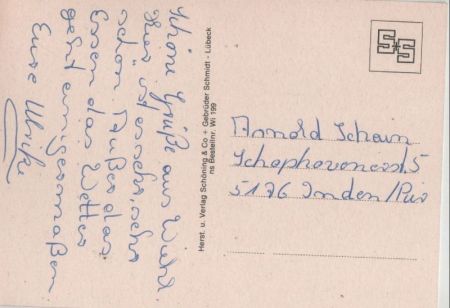 Schöne Grüße aus Wiehl.
Hier ist es sehr, sehr
schön. Außer das
Essen das Wetter
geht einigermaßen
Eure Ulrike
Herst. u. Verlag Schöning & Co + Gebrüder Schmidt - Lübeck
ns Bestellnr. Wi 199
S+S
Arnold Schain
Schophovenerstr. 5
5176 Inden/Pier